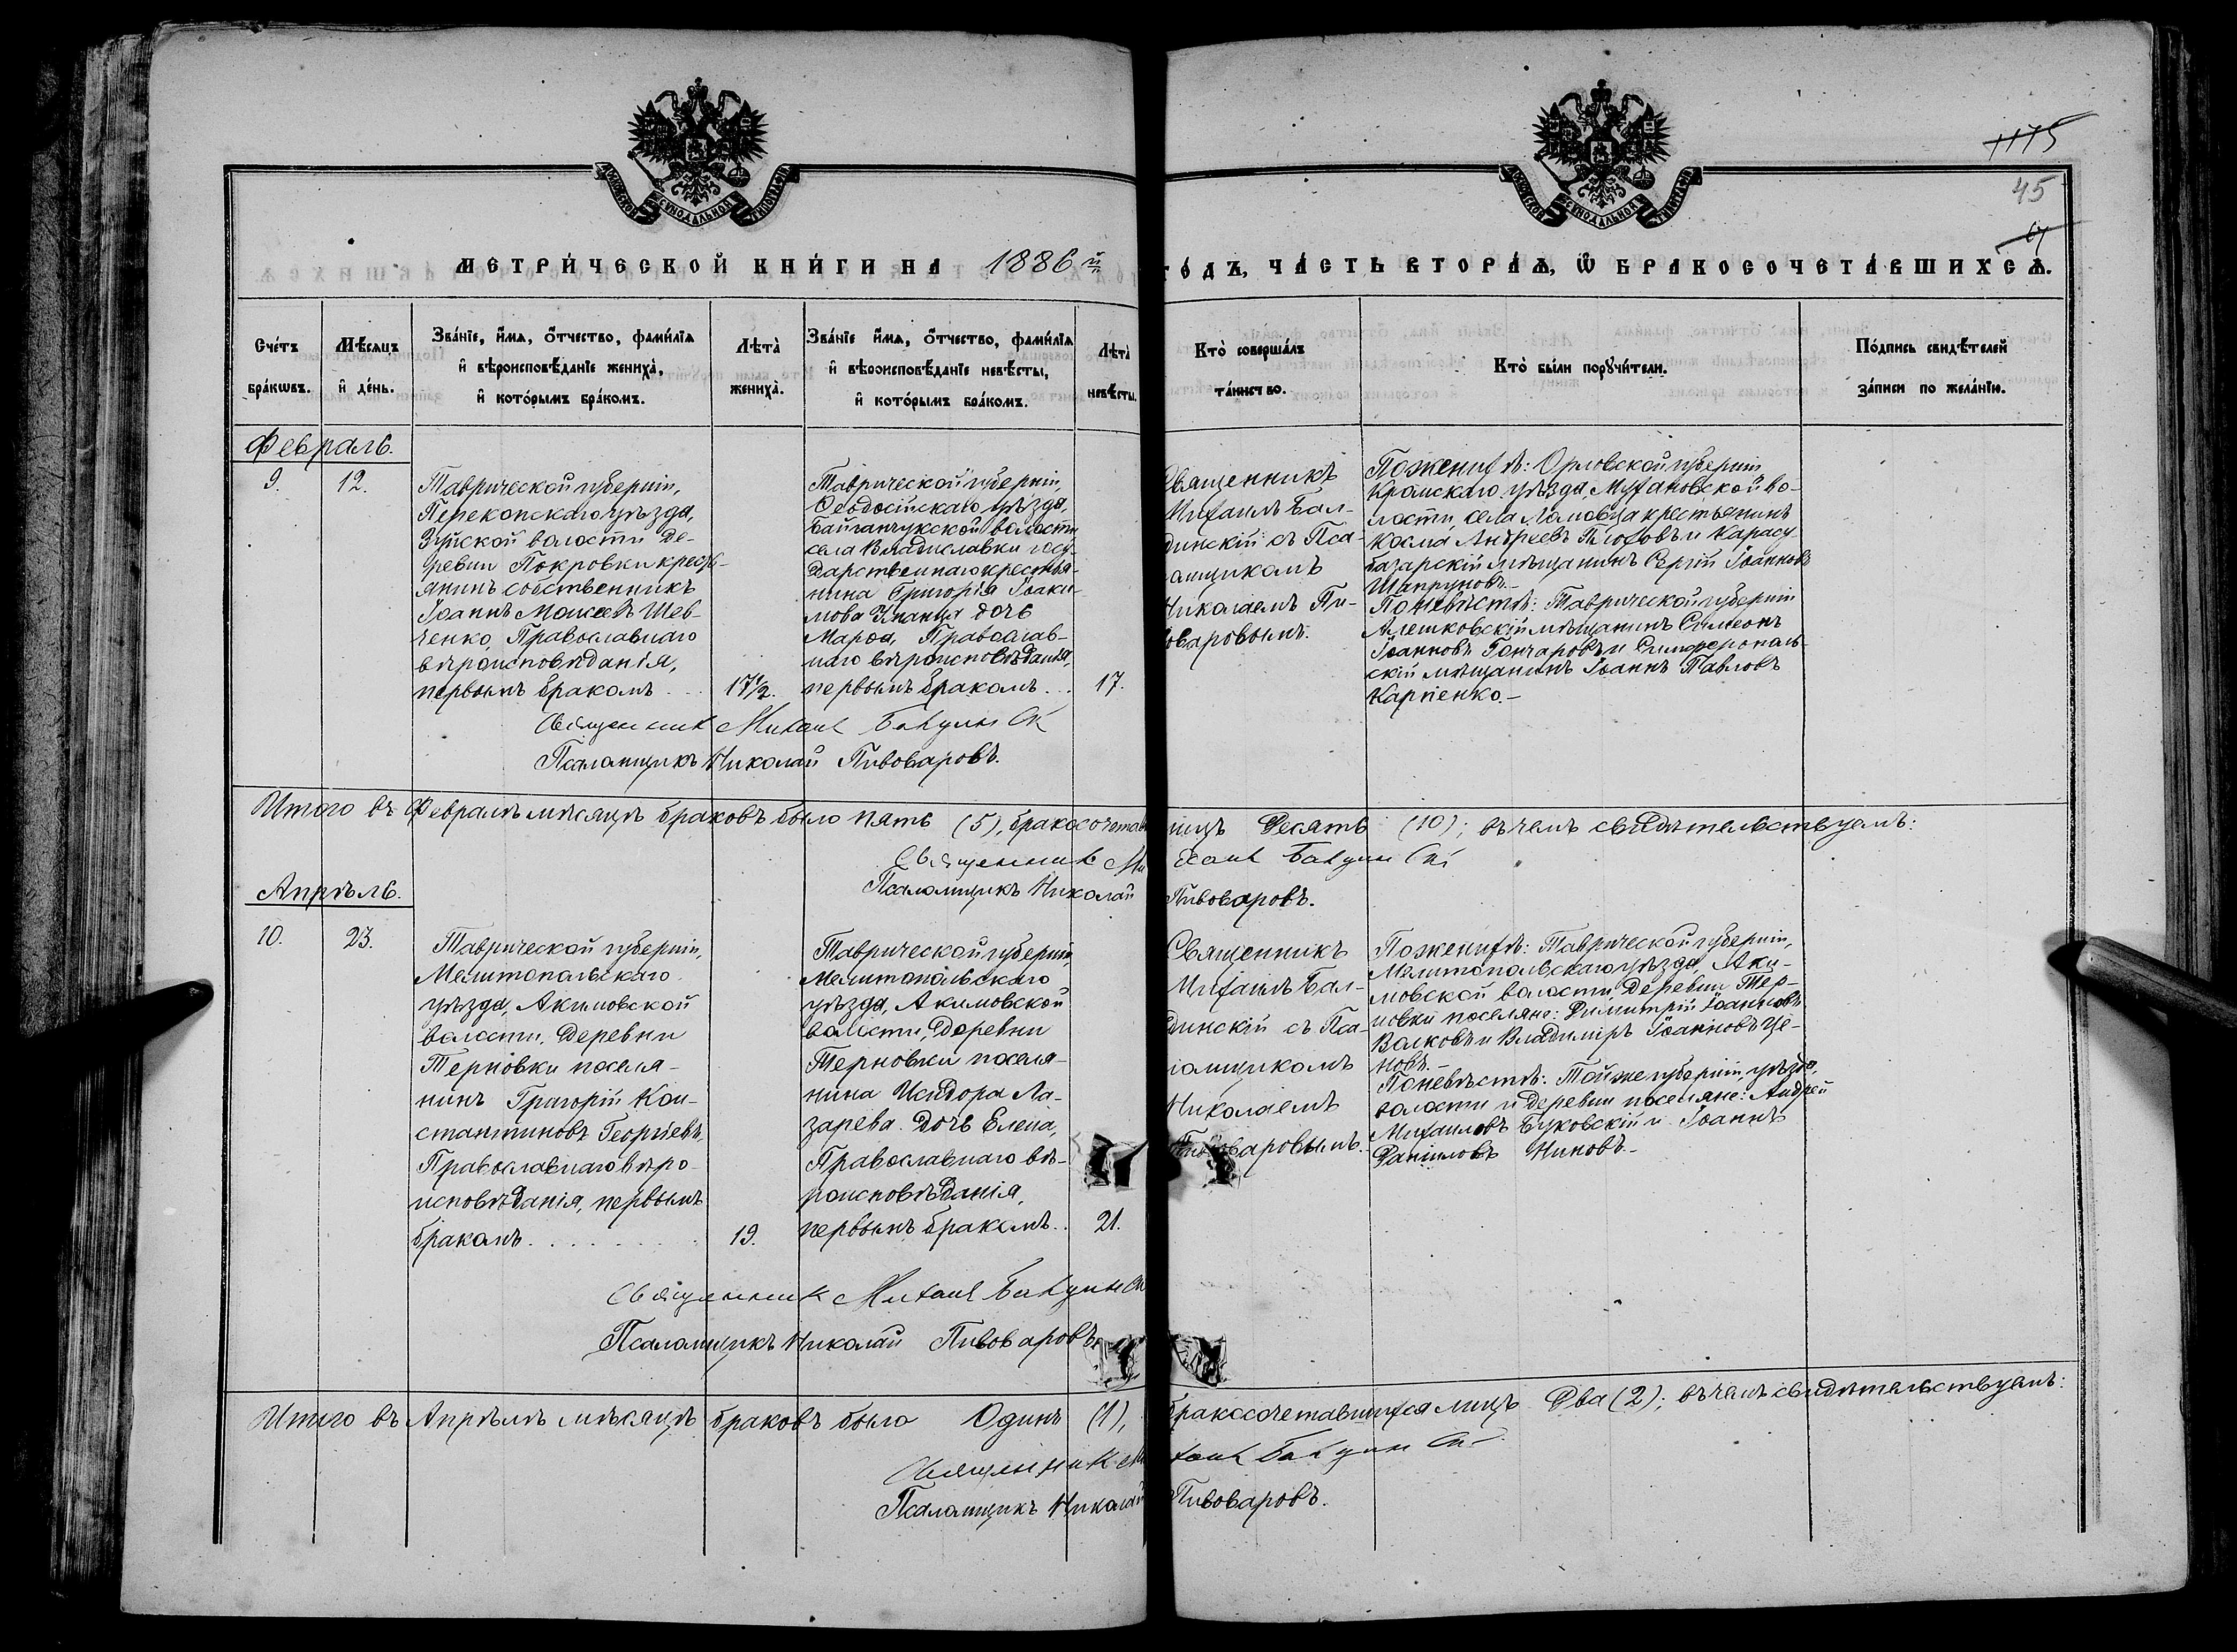 1175
45
МЕТРИЧЕСКОЙ КНИГИ НА 1886 й
ГОДЪ, ЧАСТЬ ВТОРАЯ, Ѿ БРАКОСОЧЕТАВШИХСЯ.
Счетъ браковъ.
Мѣсяцъ и день.
Званіе, имя, отчество, фамилія
и вѣроисповѣданіе жениха,
и которымъ бракомъ.
Лѣта
жениха.
Званіе имя, отчество, фамилія
и вѣроисповѣданіе невѣсты,
и которымъ бракомъ.
Лѣта
невѣсты.
Кто совершалъ
таинство.
Кто были поручители.
Подпись свидѣтелей
записи по желанію.
Февраль.
9.
12.
Таврической губерніи,
Перекопскаго уѣзда,
Зуйской волости де-
ревни Покровки кресть-
янинъ собственникъ
Іоаннъ Моисеевъ Шев-
ченко, Православнаго
вѣроисповѣданія,
первымъ бракомъ
17½.
Таврической губерніи,
Ѳеодосійскаго уѣзда,
Байганчукской волости
села Владиславки госу-
дарственнаго крестья-
нина Григорія Іоаки-
мова дочь
Марѳа, Православ-
наго вѣроисповѣданія,
первымъ бракомъ
17.
Священникъ
Михаилъ Бал-
динскій съ Пса-
ломщикомъ
Николаемъ Пи-
воваровымъ.
По женихѣ: Орловской губерніи
Кромскаго уѣзда, Мухановской во-
лости, села Ломовца крестьянинъ
Косма Андреевъ и Карасу-
базарскій мѣщанинъ Сергій Іоанновъ
Шапруновъ.-
По невѣстѣ: Таврической губерніи
Алешковскій мѣщанинъ Симеонъ
Іоанновъ Гончаровъ и Симферополь-
скій мѣщанинъ Іоаннъ Павловъ
Карпенко.-
Священник Михаил
Псаломщикъ Николай Пивоваровъ.
Итого въ Февралѣ мѣсяцѣ браковъ было пять (5), бракосочетав лицъ Десять (10); въ чемъ свидѣтельствуемъ:
Священник Михаил
Псаломщикъ Николай Пивоваровъ.
Апрѣль.
10.
23.
Таврической губерніи,
Мелитопольскаго
уѣзда, Акимовской
волости, деревни
Терновки поселя-
нинъ Григорій Кон-
стантиновъ Георгіевъ,
Православнаго вѣро-
исповѣданія, первымъ
бракомъ
19.
Таврической губерніи,
Мелитопольскаго
уѣзда, Акимовской
волости, Деревни
Терновки поселя-
нина Исидора Ла-
зарева дочь Елена,
Православнаго вѣ-
роисповѣданія,
первымъ бракомъ
21.
Священникъ
Михаилъ Бал-
динскій съ Пса-
ломщикомъ
Николаемъ
Пивоваровымъ.
По женихѣ: Таврической губерніи,
Мелитопольскаго уѣзда Аки-
мовской волости, деревни Тер-
новки поселяне: Димитрій Іоанновъ
Волковъ и Владиміръ Іоанновъ Це-
новъ.-
По невѣстѣ: Той же губерніи, уѣзда,
волости и деревни поселяне: Андрей
Михаиловъ Буковскій и Іоаннъ
Даніиловъ Ниновъ.-
Священник Михаил
Псаломщикъ Николай Пивоваровъ.
Итого въ Апрѣлѣ мѣсяцѣ браковъ было Одинъ (1), бракосочетавшихся лицъ Два (2); въ чемъ свидѣтельствуемъ:
Священник Михаил
Псаломщикъ Николай Пивоваровъ.